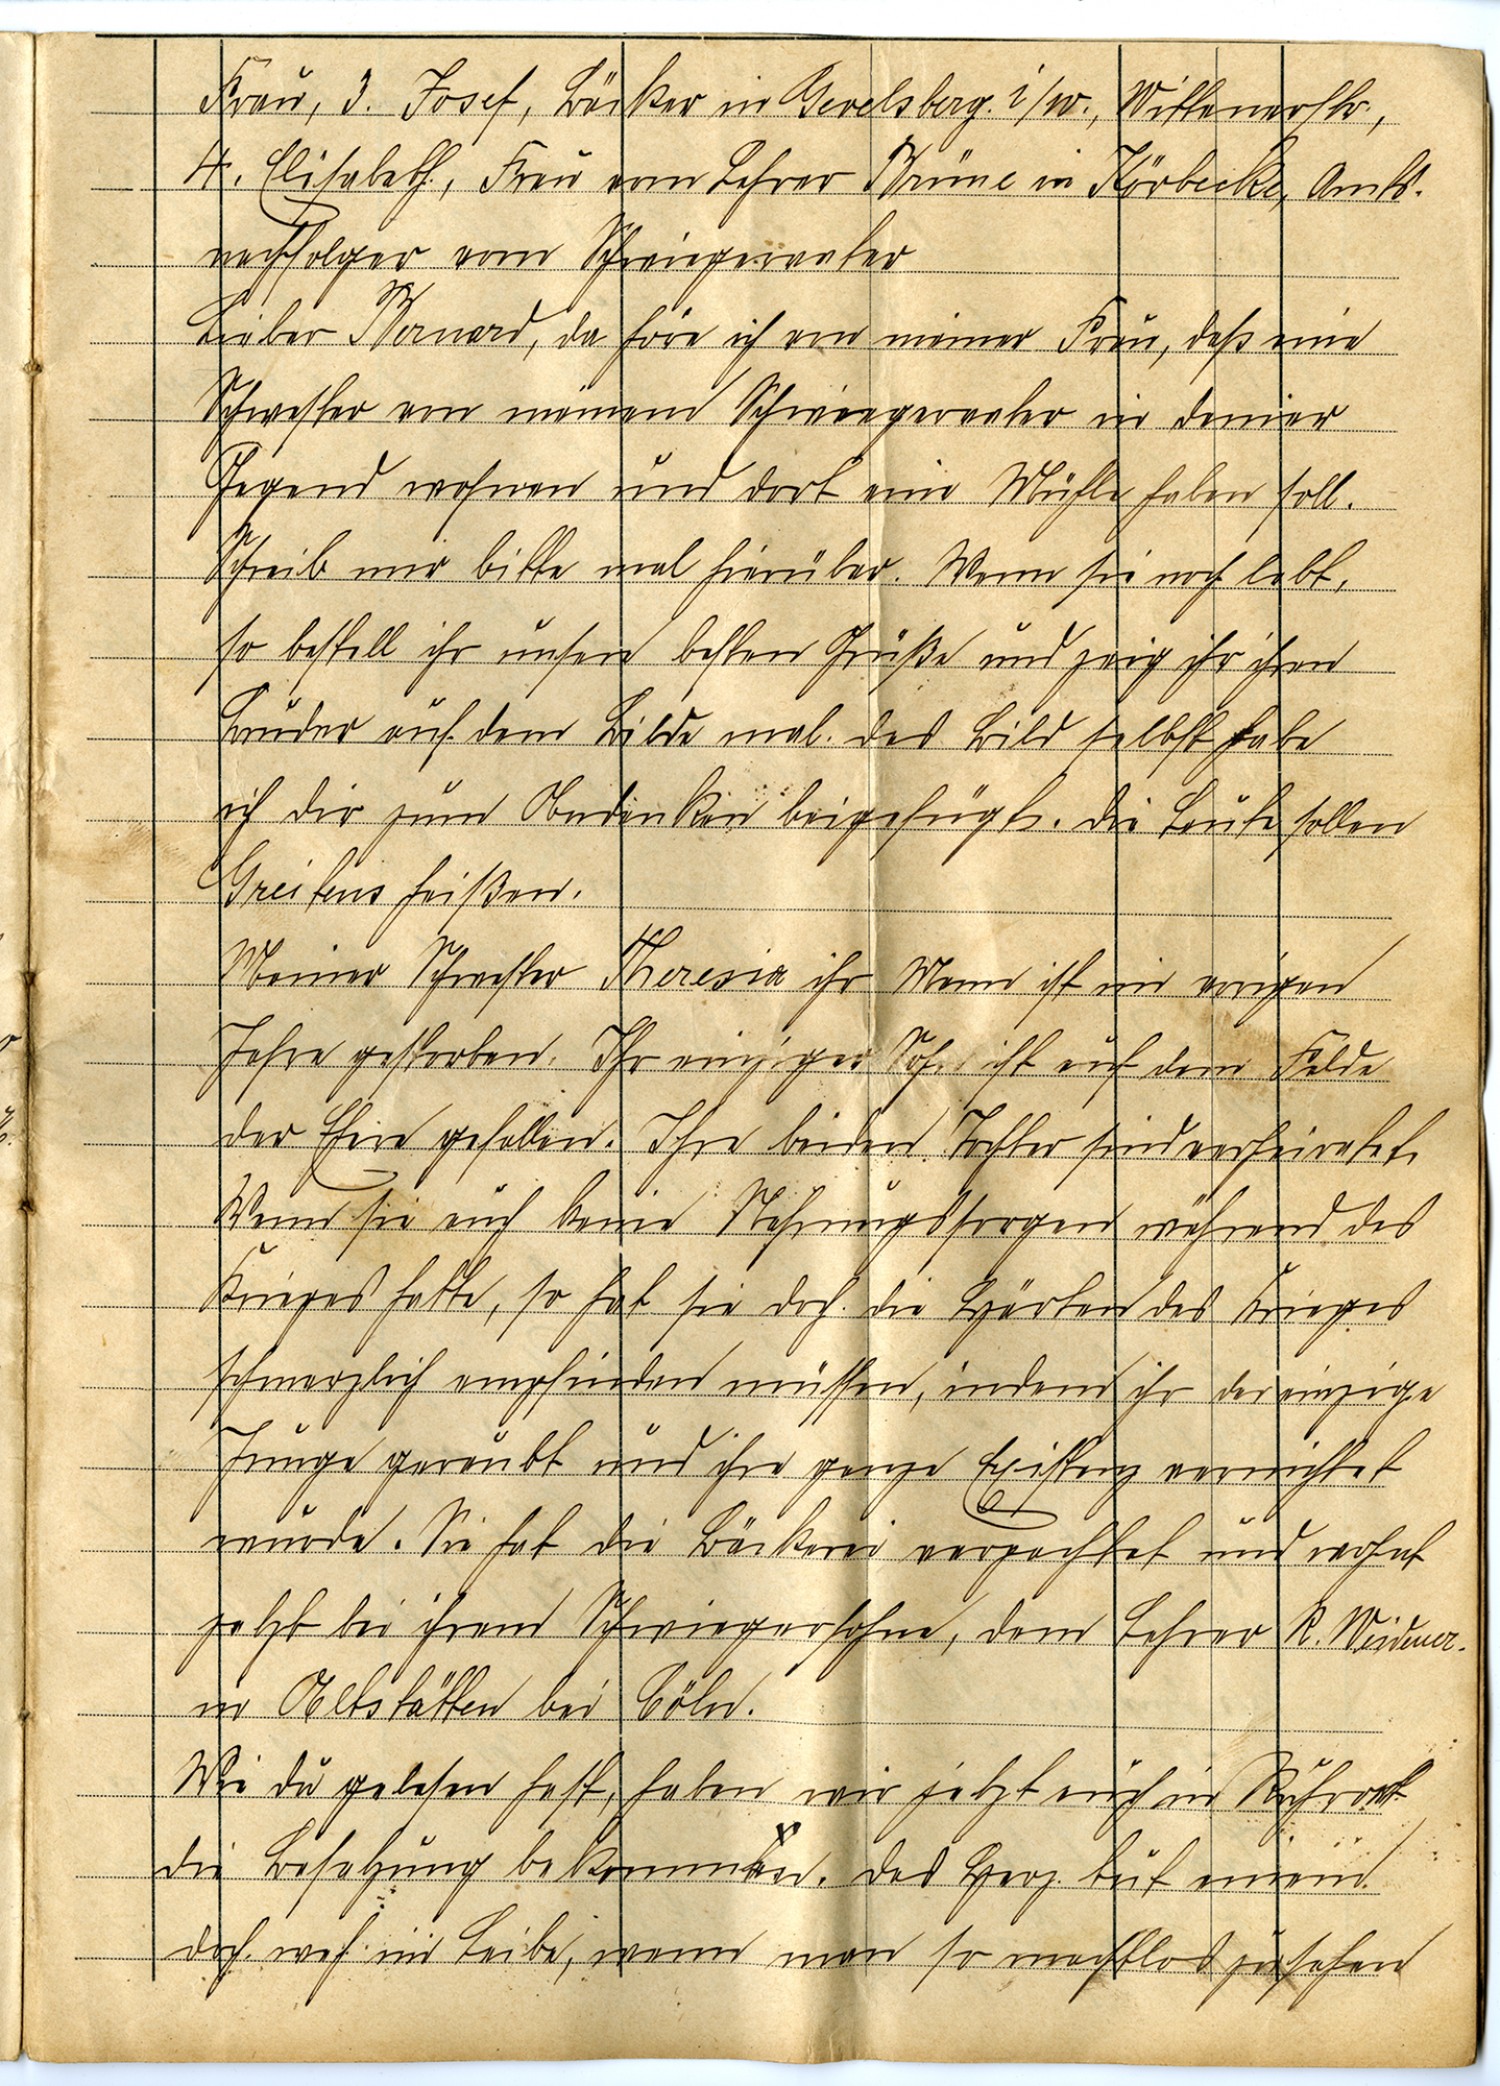 Frau, 3. Josef, Bäcker in Gevelsberg. i/w., Wittenerstr,
4. Elisabeth, Frau vom Lehrer Brüne in Körbecke, Amts-
nachfolger vom Schwiegervater
Lieber Bernard, da höre ich von meiner Frau, daß eine
Schwester von meinem Schwiegervater in deiner
Gegend wohnen und dort eine Mühle haben soll.
Schreib mir bitte mal hierüber. Wenn sie noch lebt,
so bestell ihr unsere besten Grüße und zeig ihr ihren
Bruder auf dem Bilde mal. Das Bild selbst habe
ich dir zum Andenken beigefügt. Die Leute sollen
Greitens heißen.
Meiner Schwester Theresia ihr Mann ist im vorigen
Jahre gestorben. Ihr einziger Sohn ist auf dem Felde
der Ehre gefallen. Ihre beiden Tochter sind verheiratet.
Wenn sie auch keine Nahrungssorgen während des
Krieges hatte, so hat sie doch die Härten des Krieges
schmerzlich empfinden müssen, indem ihr der einzige
Junge geraubt und ihre ganze Existenz vernichtet
wurde. Sie hat die Bäckerei verpachtet und wohnt
jetzt bei ihrem Schwiegersohne, dem Lehrer R. Weidener
in Altstätten bei Cöln.
Wie du gelesen hast, haben wir jetzt auch in Ruhrort
die Besatzung bekommen. Das Herz tut einem
doch weh im Leibe, wenn man so machtlos zusehen